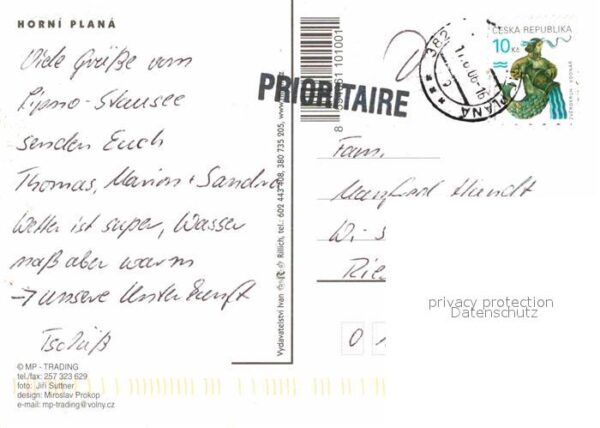 HORNÍ PLANÁ
Viele Grüße vom
Lipno-Stausee
senden Euch
Thomas, Marion + Sandra
Wetter ist super, Wasser
naß aber warm
→ unsere Unterkunft
Tschüß
© MP - TRADING
tel./fax: 257 323 629
foto: Jiří Suttner
design: Miroslav Prokop
e-mail: mp-trading@volny.cz
Vydavatelství Ivan Rillich, tel.: 602 443 408, 380 735 205, www.
8 101001
PRIORITAIRE
382
PLANÁ
ČESKÁ REPUBLIKA
10 Kč
Fam.
Manfred
Wi-s
Rie
0 1
privacy protection
Datenschutz